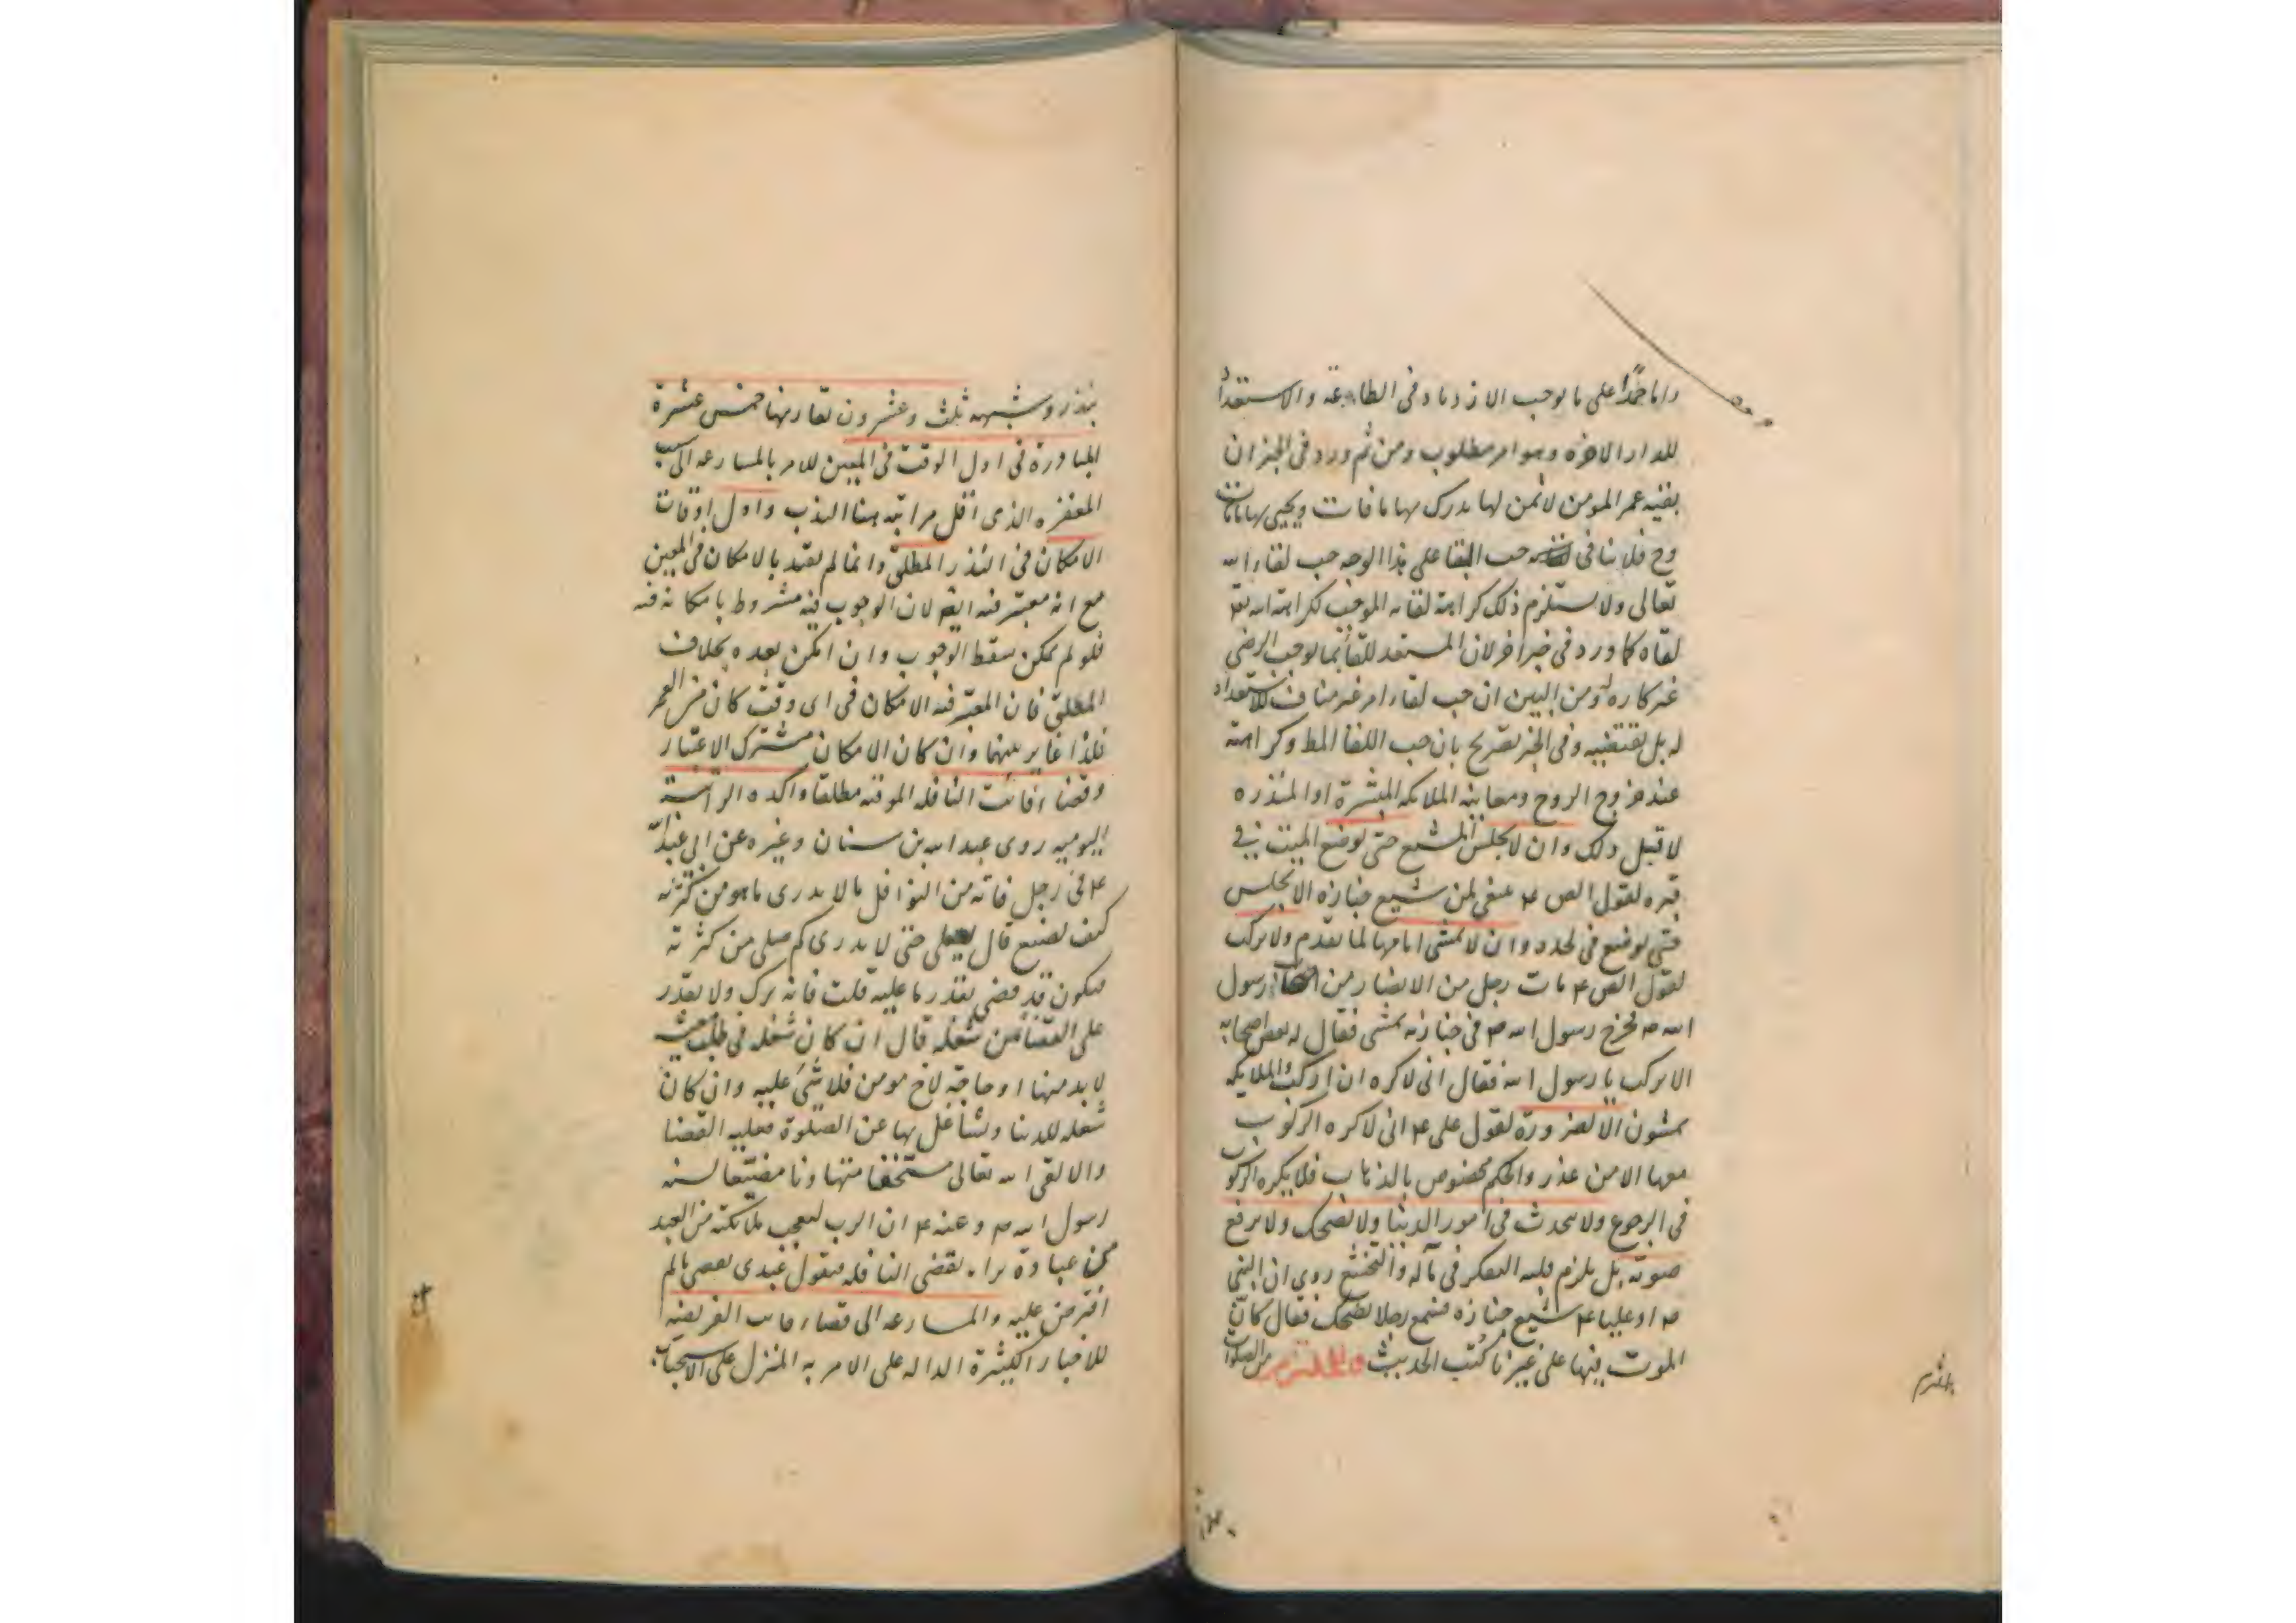 داما حمدا على ما يوجب الازدياد في الطاعة والاستعداد
للدار الاخرة وهو امر مطلوب ومن ثم ورد في الخبر ان
بقية عمر المومن لا ثمن لها يدرك بها ما فات ويحيى بها ما مات
وح فلا ينافى حب البقا على هذا الوجه حب لقاء الله
تعالى ولا يستلزم ذلك كراهة لقائه الموجب لكراهة الله تعا
لقاه كما ورد في خبر اخر لان المستعد للقا بما يوجب الرضى
غير كاره له ومن البين ان حب لقاء امر غير مناف للاستعداد
له بل يقتضيه وفي الخبر تصريح بان حب اللقا المط وكراهته
عند خروج الروح ومعاينة الملايكه المبشرة او المنذره
لا قبل ذلك وان لا يجلس المشيع حتى يوضع الميت في
قبره لقول الص ع ينبغي لمن شيع جنازه الا يجلس
حتى يوضع في لحده وان لا يمشى امامها لما تقدم ولا يركب
لقول الص ع مات رجل من الانصار من اصحاب رسول
الله ص فخرج رسول الله ص في جنازته يمشى فقال له بعض اصحابه
الا تركب يا رسول الله فقال انى لاكره ان اركب والملايكه
يمشون الا لضرورة لقول على ع انى لاكره الركوب
معها الا من عذر والحكم مخصوص بالذهاب فلا يكره الركوب
في الرجوع ولا يتحدث في امور الدنيا ولا يضحك ولا يرفع
صوته بل يلزم قلبه التفكر في مآله والتخشع روى ان النبي
ص او عليا ع شيع جنازه فسمع رجلا يضحك فقال كان
الموت فيها على غيرنا كتب الحديث من الصلوات
بنذر وشبهه ثلث وعشرون تقارنها خمس عشرة
المبادرة في اول الوقت في المعين للامر بالمسارعه الى سبب
المغفره الذى اقل مراتبه هنا الندب واول اوقات
الامكان في النذر المطلق وانما لم يقيد بالامكان في المعين
مع انه معتبر فيه ايضا لان الوجوب فيه مشروط بامكانه فيه
فلو لم يمكن سقط الوجوب وان امكن بعده بخلاف
المطلق فان المعتبر فيه الامكان في اى وقت كان من العمر
فلذا غاير بينهما وان كان الامكان مشترك الاعتبار
وقضا فائت النافله الموقته مطلقا واكده الراتبة
اليوميه روى عبد الله بن سنان وغيره عن ابي عبد الله
ع في رجل فاته من النوافل ما لا يدرى ما هو من كثرته
كيف يصنع قال يصلى حتى لا يدرى كم صلى من كثرته
فيكون قد قضى بقدر ما عليه قلت فانه ترك ولا يقدر
على القضا من شغله قال ان كان شغله في طلب معيشة
لا بد منها او حاجة لاخ مومن فلا شئ عليه وان كان
شغله للدنيا وتشاغل بها عن الصلوة فعليه القضا
والا لقى الله تعالى مستخفا متهاونا مضيعا لسنه
رسول الله ص وعنه ع ان الرب ليعجب ملائكته من العبد
من عباده يراه يقضى النافله فيقول عبدى يقضى ما لم
افترض عليه والمسارعه الى قضاء فائت الفريضه
للاخبار الكثيرة الداله على الامر به المنزل على الاستحباب